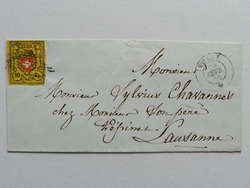 Monsieur
Monsieur Sylvius Chavannes
chez Monsieur son père
Lausanne
10